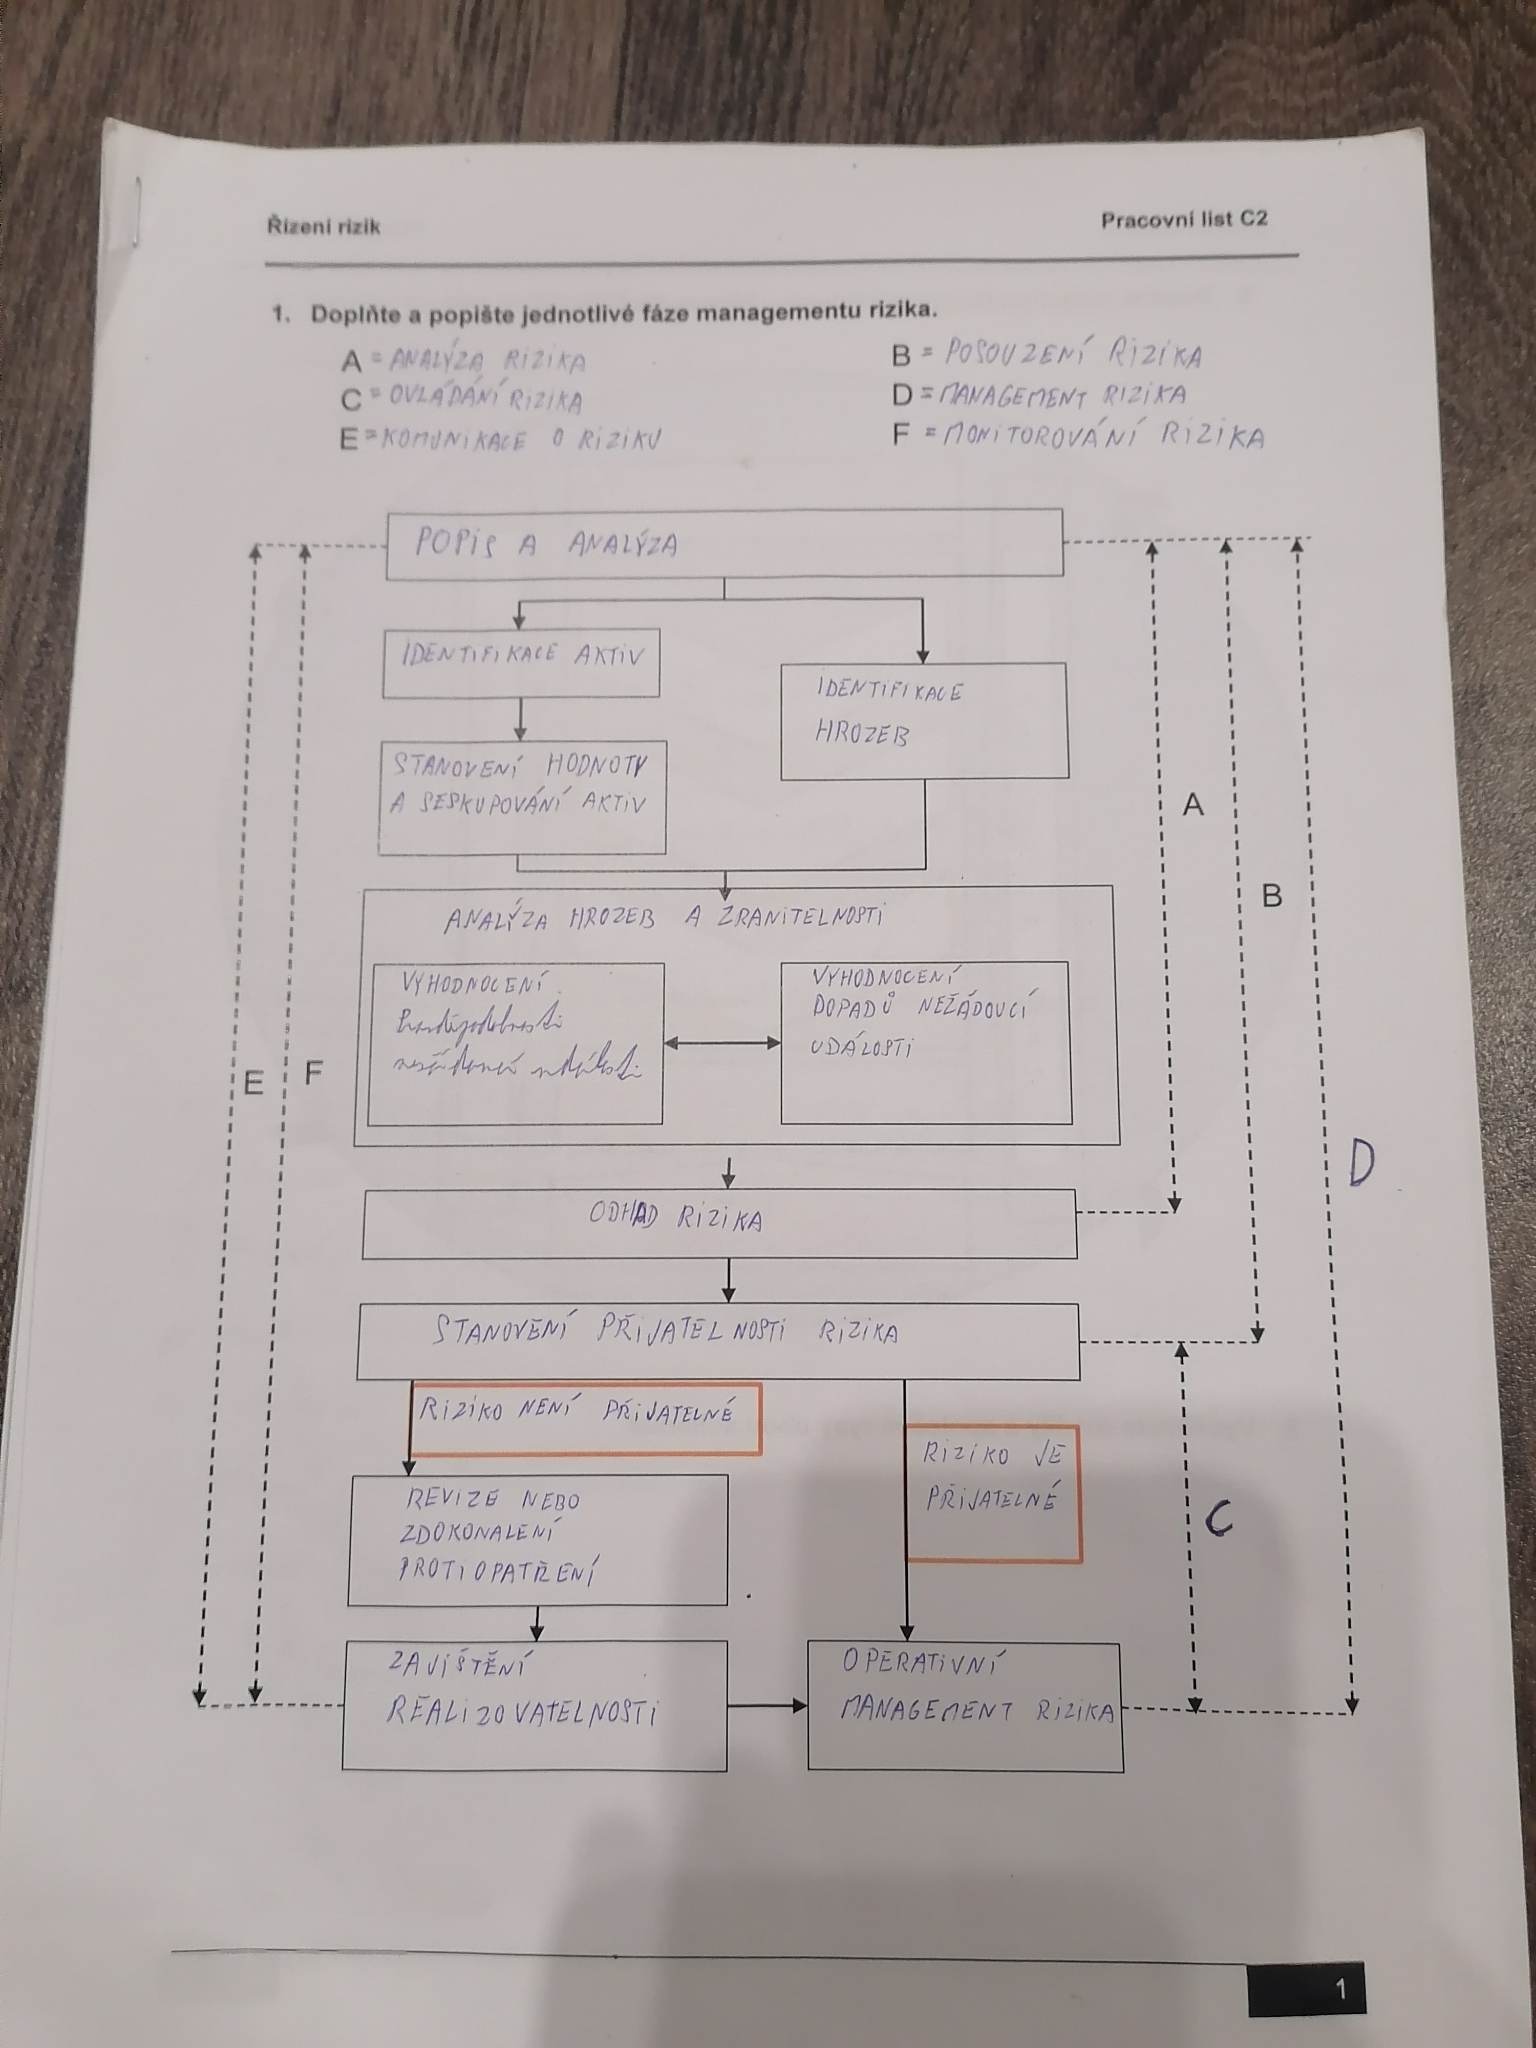 Řízení rizik
Pracovní list C2
1. Doplňte a popište jednotlivé fáze managementu rizika.
A = ANALÝZA RIZIKA
B = POSOUZENÍ RIZIKA
C = OVLÁDÁNÍ RIZIKA
D = MANAGEMENT RIZIKA
E = KOMUNIKACE O RIZIKU
F = MONITOROVÁNÍ RIZIKA
POPIS A ANALÝZA
IDENTIFIKACE AKTIV
IDENTIFIKACE
HROZEB
STANOVENÍ HODNOTY
A SESKUPOVÁNÍ AKTIV
A
B
ANALÝZA HROZEB A ZRANITELNOSTI
VYHODNOCENÍ
Pravděpodobnosti
nežádoucí události
VYHODNOCENÍ
DOPADŮ NEŽÁDOUCÍ
UDÁLOSTI
E
F
D
ODHAD RIZIKA
STANOVENÍ PŘIJATELNOSTI RIZIKA
RIZIKO NENÍ PŘIJATELNÉ
RIZIKO JE
PŘIJATELNÉ
REVIZE NEBO
ZDOKONALENÍ
PROTIOPATŘENÍ
C
ZAJIŠTĚNÍ
REALIZOVATELNOSTI
OPERATIVNÍ
MANAGEMENT RIZIKA
1